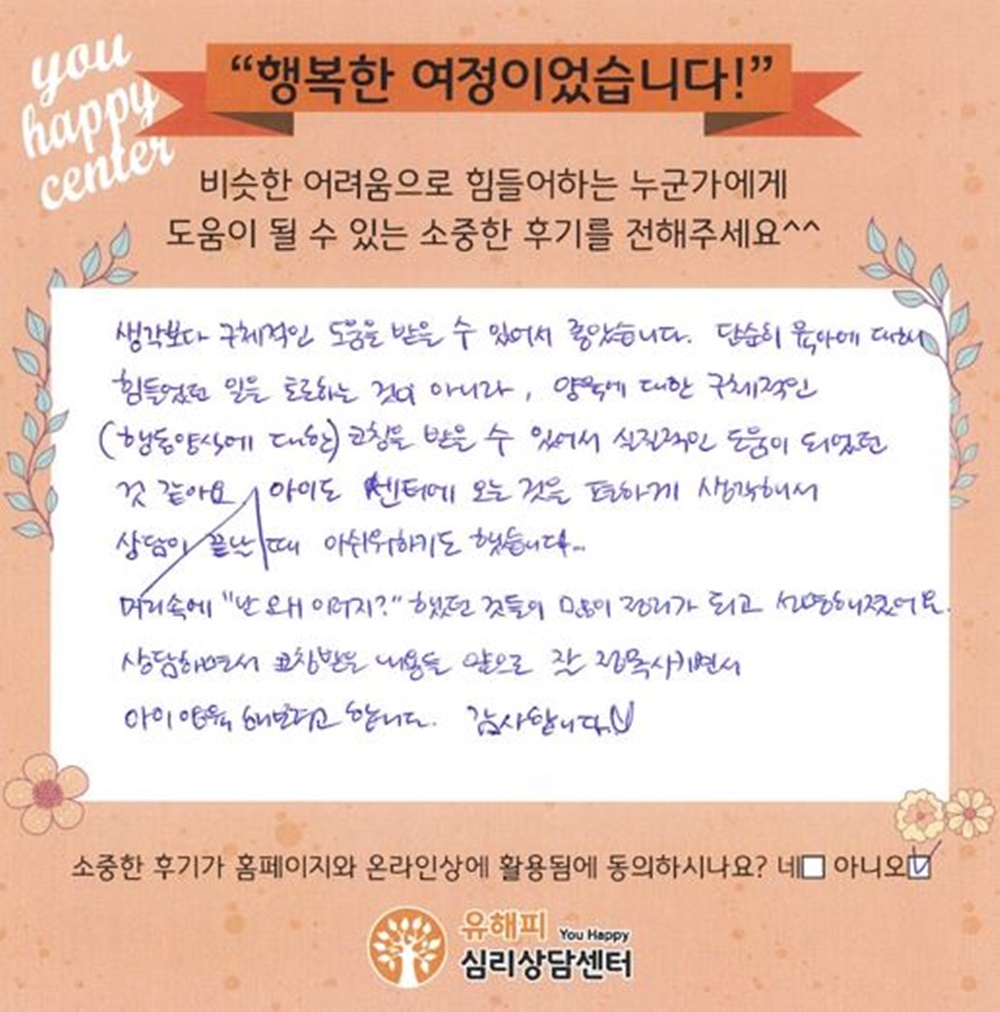 you
happy
center
“행복한 여정이었습니다!”
비슷한 어려움으로 힘들어하는 누군가에게
도움이 될 수 있는 소중한 후기를 전해주세요^^
생각보다 구체적인 도움을 받을 수 있어서 좋았습니다. 단순히 육아에 대해
힘들었던 일을 토로하는 것이 아니라, 양육에 대한 구체적인
(행동양식에 대한) 코칭을 받을 수 있어서 실질적인 도움이 되었던
것 같아요 아이도 센터에 오는 것을 편하게 생각해서
상담이 끝난 때 아쉬워하기도 했습니다...
머리속에 "난 왜 이러지?" 했던 것들이 많이 정리가 되고 선명해졌어요.
상담하면서 코칭받은 내용들 앞으로 잘 접목시키면서
아이 양육 해보려고 합니다. 감사합니다.
소중한 후기가 홈페이지와 온라인상에 활용됨에 동의하시나요? 네 아니오
유해피 You Happy
심리상담센터